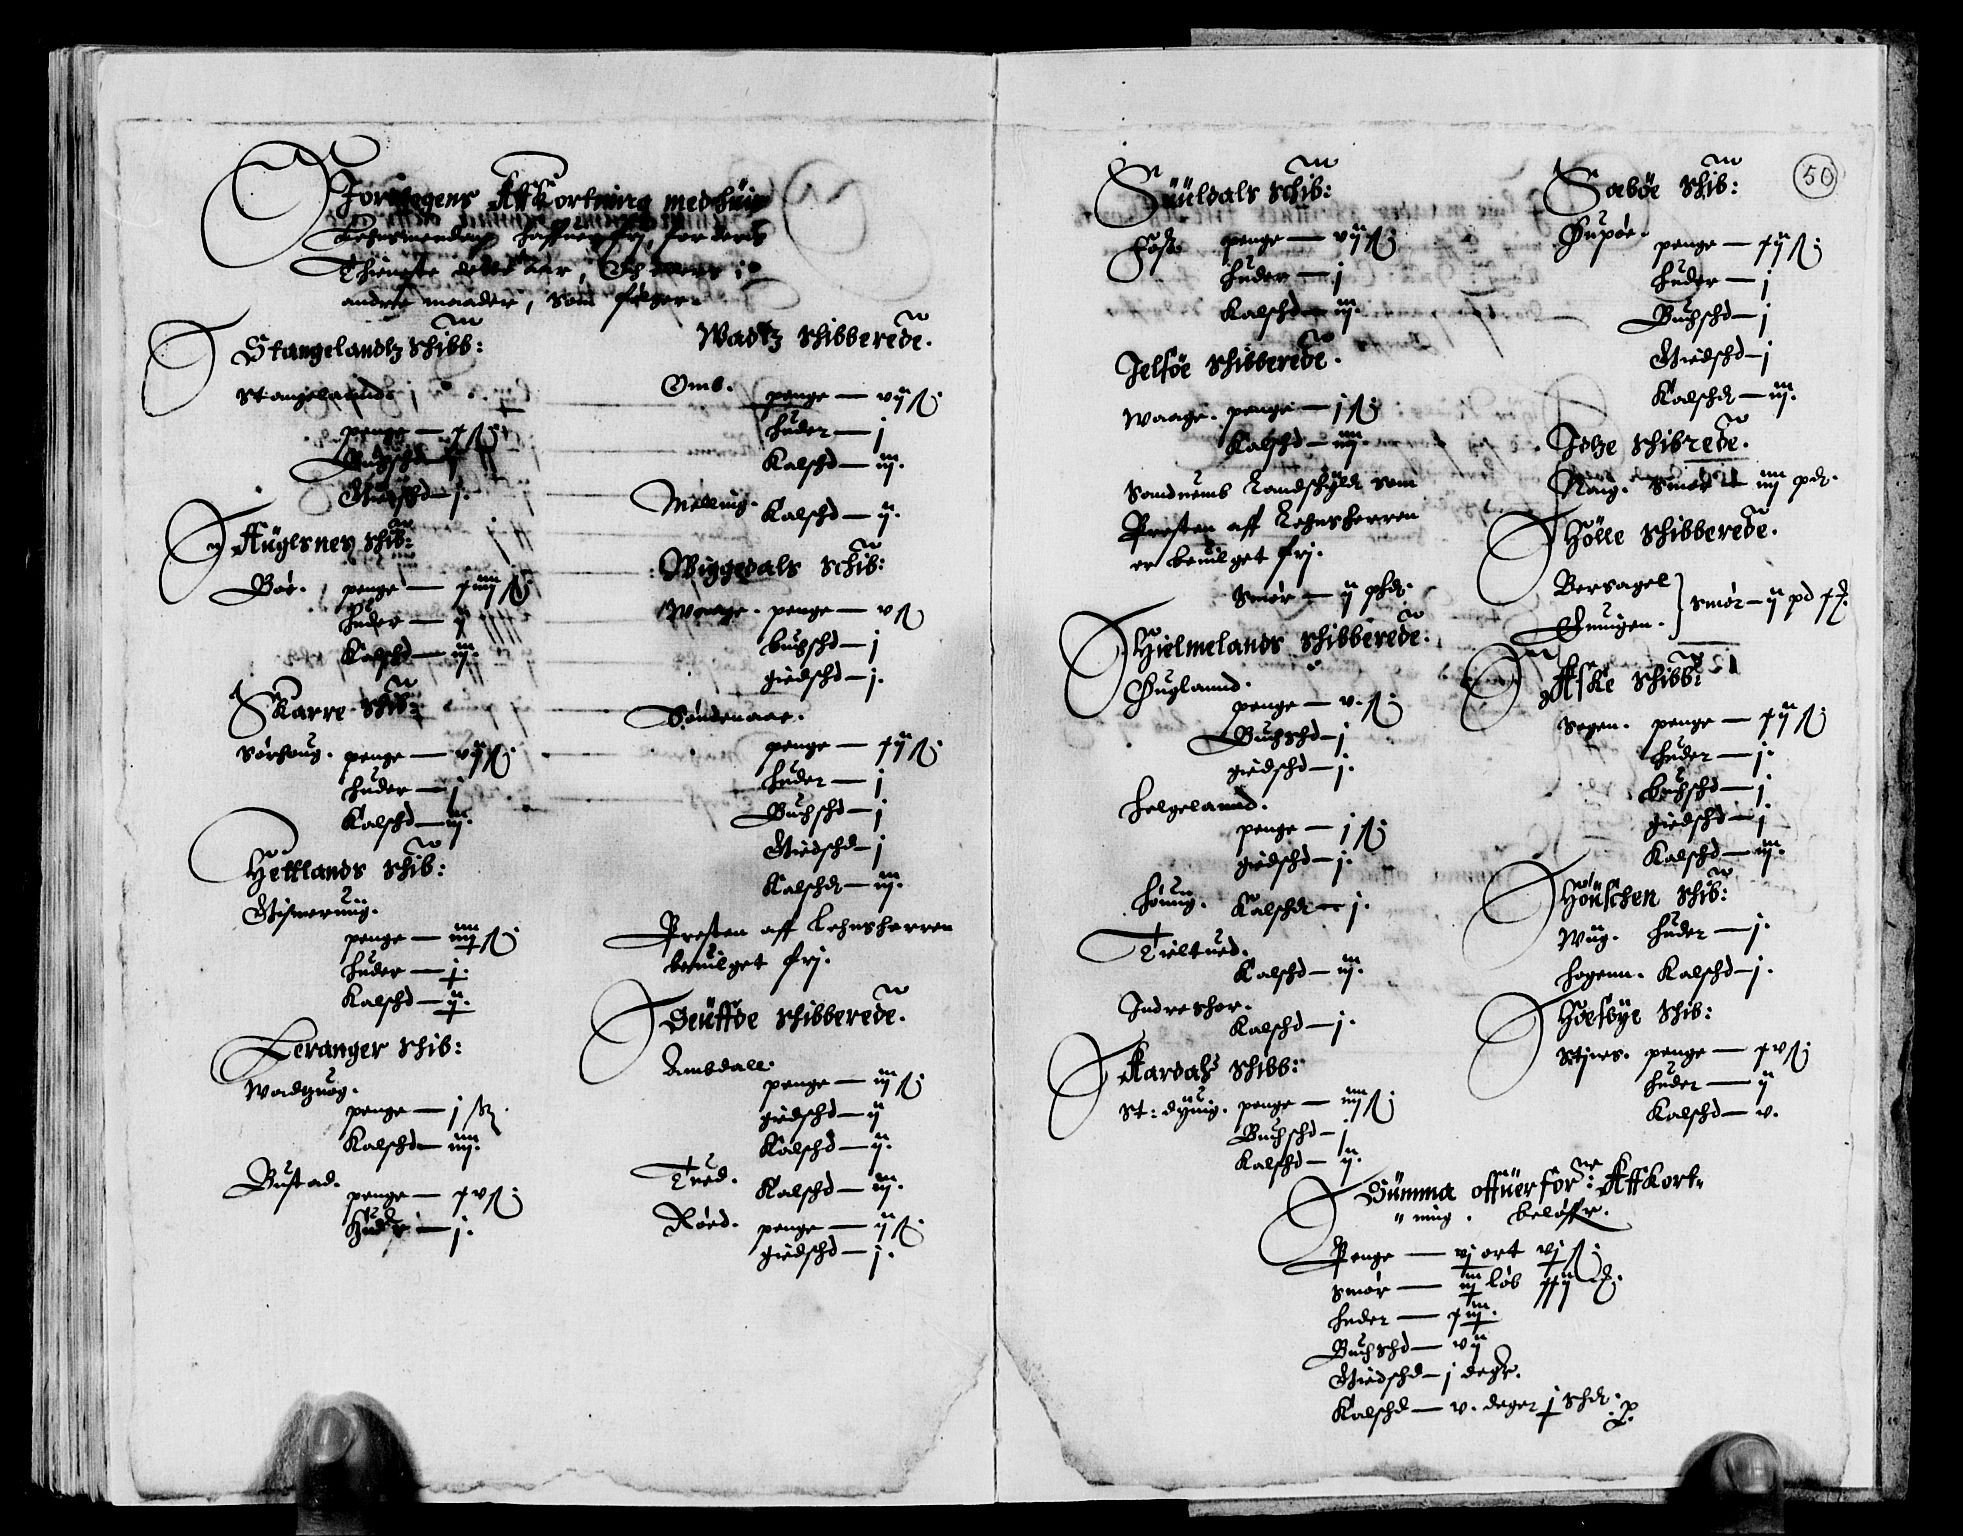 Forttegens Affkortning med huis
Lehnsmendenn haffuer fri, for deris
Thieneste dette aar, Och ellers i
andre maader, som følger.
Stangelandtz schibb:
Stangelannd.
penge — x ß:
Buchschd — j
Giedschd — j.
Auglsnes schib:
Bøe. penge — xiiij ß
huder — ij
Kalschd — iij.
Skarre schib:
Sørhaug. penge — vij ß:
huder — j
Kalschd — iij.
Hettlands schib:
Gismeruig.
penge — iiij ß:
huder — j.
Kalschd — ij.
Leranger schib:
Wadtzuog.
penge — j ß.
Kalschd — iiij.
Bustad.
penge — xv ß:
Huder — j.
Wadtz schibberede.
Omb.
penge — vij ß:
huder — j
Kalschd — iij.
Melling. Kalschd — ij.
Wiggedals schib:
Waage. penge — v ß
buchschd — j
giedschd — j.
Søndenaae.
penge — xij ß:
huder — j
Buchschd — j
Giedschd — j
Kalschd — iij.
Presten aff Lehnsherren
beuilget fri.
Seuffde schibberede.
Amdall.
penge — iij ß:
giedschd — ij
Kalschd — ij.
Tued. Kalschd — iij.
Røed. penge — ij ß:
giedschd — j.
Suuldals schib:
Foss. penge — vij ß:
huder — j
Kalschd — iij.
Jelsøe schibberede.
Waage. penge — j ß:
Kalschd — iiij.
Sandnems Landschyld som
Presten aff Lehnsherren
er beuilget fri.
Smør — ij phd.
Hielmelands schibberede.
Huglannd.
penge — v. ß:
Buchschd — j
giedschd — j.
helgelannd.
penge — j ß:
giedschd — j.
høuig. Kalschd — j.
Tieltued.
Kalschd — iij.
Indreshor.
Kalschd — j.
Aardals schibb:
St: dyuig. penge — iiij ß:
Buchschd — j
Kalschd — ij.
50
Sæbøe schib:
Hupøe.
penge — xij ß:
huder — j
Buchschd — j
Giedschd — j
Kalschd — iij.
Jotze schibrede.
Roug. Smør — iiij pd.
Hölle schibberede.
Bersagel
Eunigen. } Smør — ij pd
Aske schibb:
Segen. penge — xij ß:
huder — j.
buchschd — j
giedschd — j
Kalschd — iij.
Höuschen schib:
Wug. huder — j.
hogenn. Kalschd — j.
Höesöye schib:
Stines. penge — xv ß:
huder — ij
Kalschd — v.
Summa offuerfor: Affkort-
" ning. beløffr.
Penge — vj ort vj ß:
Smør — iij løb
huder — xiij.
Buchschd — vij
Giedschd — j degr.
Kalschd — v. deger j schd: